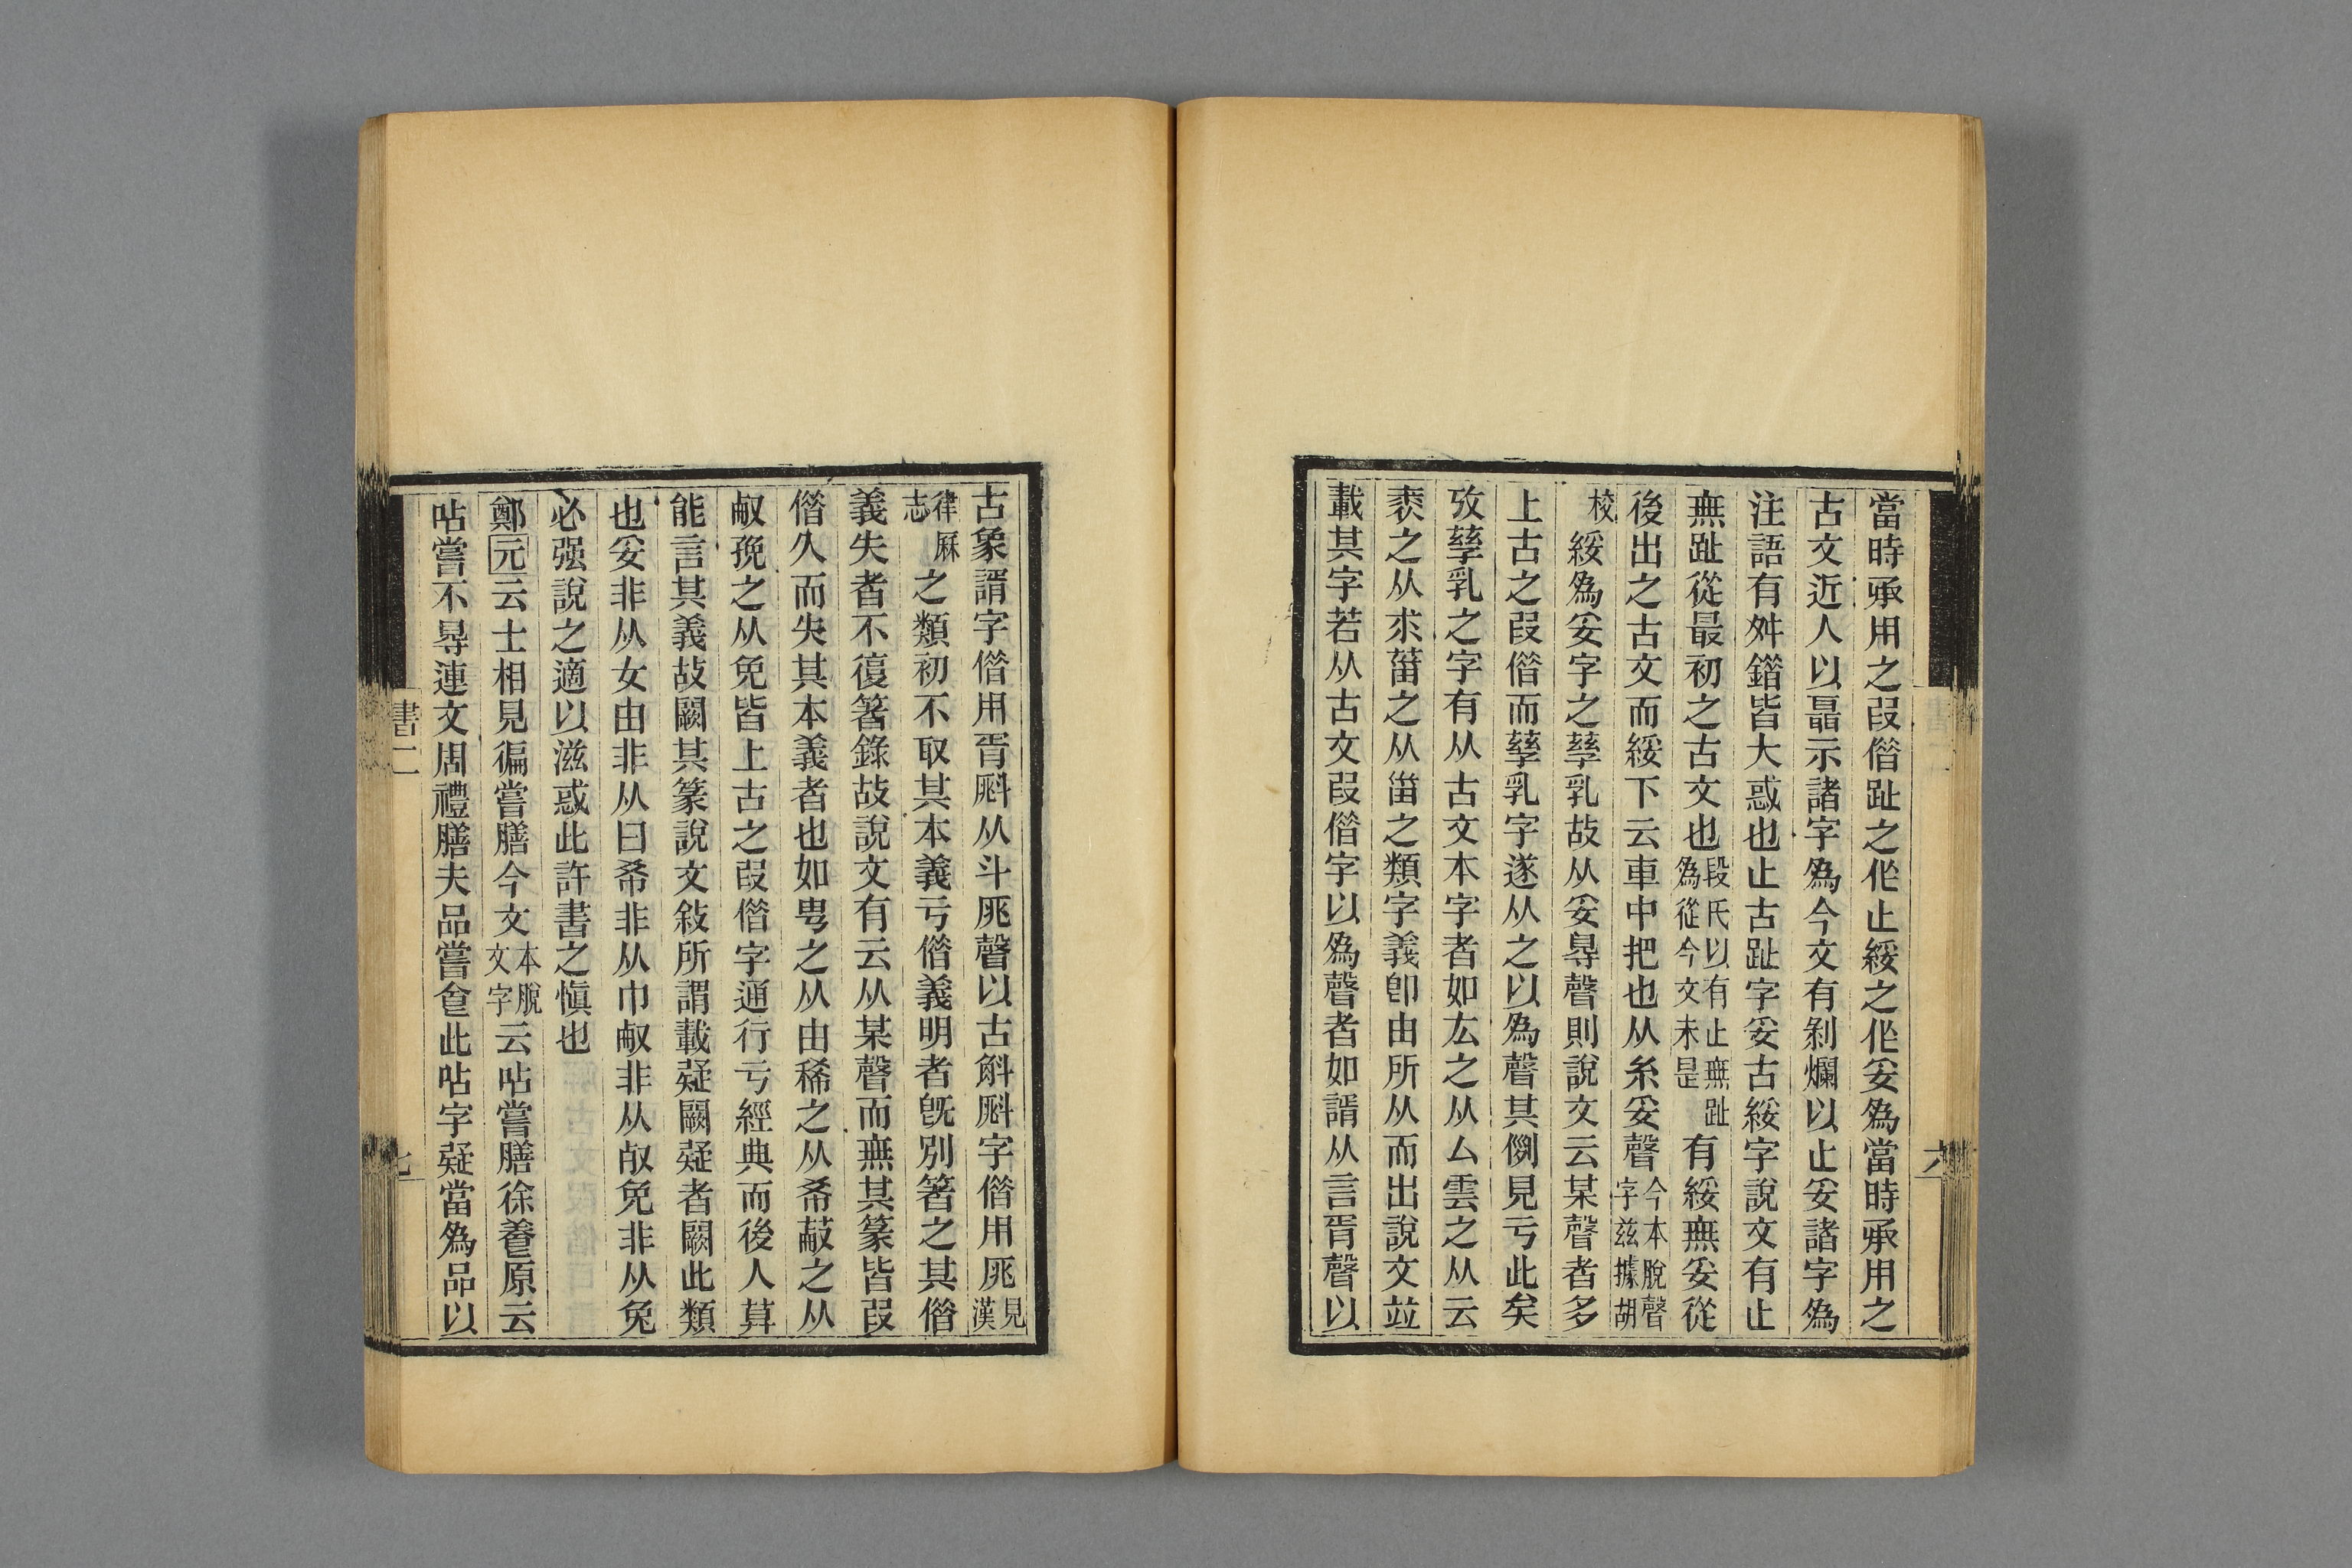 當時承用之叚偺趾之作止綏之作妥為當時承用之
古文近人以畕示諸字為今文有剝爛以止妥諸字為
注語有舛鍇皆大惑也止古趾字妥古綏字說文有止
無趾從最初之古文也段氏以有止無趾為從今文未是有綏無妥從
後出之古文而綏下云車中把也从糸妥聲今本脫聲字兹據胡
校綏為妥字之孳乳故从妥㝵聲則說文云某聲者多
上古之叚偺而孳乳字遂从之以為聲其側見亏此矣
攷孳乳之字有从古文本字者如厷之从厶雲之从云
裘之从求葘之从甾之類字義卽由所从而出說文竝
載其字若从古文叚偺字以為聲者如諝从言胥聲以
古象諝字偺用胥𣂁从斗𠩓聲以古斛𣂁字偺用𠩓見漢
律厤志之類初不取其本義亏偺義明者旣別箸之其偺
義失者不復箸錄故說文有云从某聲而無其篆皆叚
偺久而失其本義者也如甹之从由稀之从希蔽之从
㡀挽之从免皆上古之叚偺字通行亏經典而後人算
能言其義故闕其篆說文敍所謂載疑闕疑者闕此類
也妥非从女由非从曰希非从巾㡀非从㡀免非从兔
必强說之適以滋惑此許書之愼也
鄭元云士相見徧嘗膳今文本脫文字云呫嘗膳徐養原云
呫嘗不㝵連文周禮膳夫品嘗𠊊此呫字疑當為品以
書二
七
六